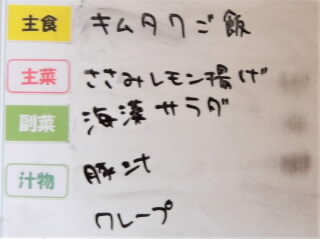 主食 キムタクご飯
主菜 ささみレモン揚げ
副菜 海藻サラダ
汁物 豚汁
クレープ